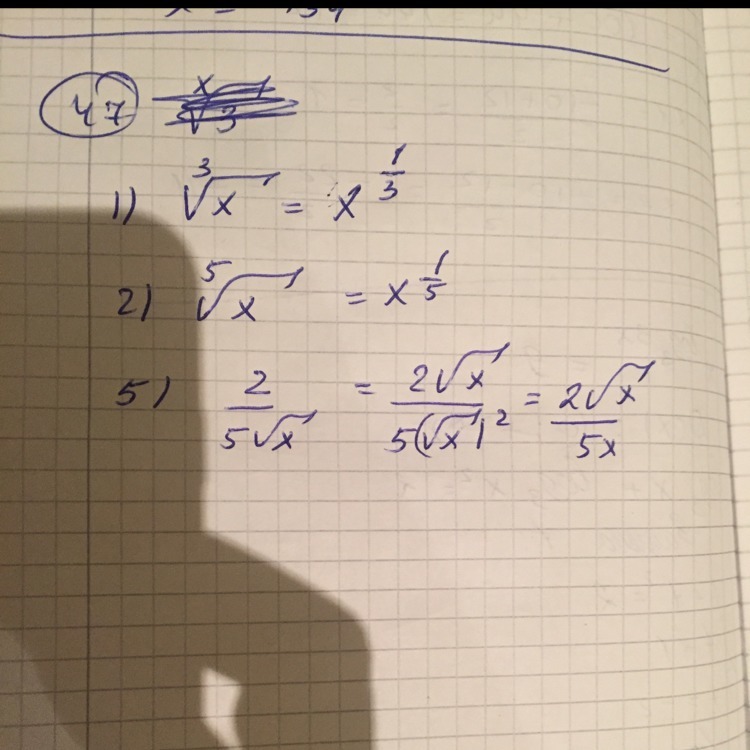 47
1) ∛x = x^(1/3)
2) ⁵√x = x^(1/5)
5) 2/(5√x) = 2√x/(5(√x)²) = 2√x/(5x)